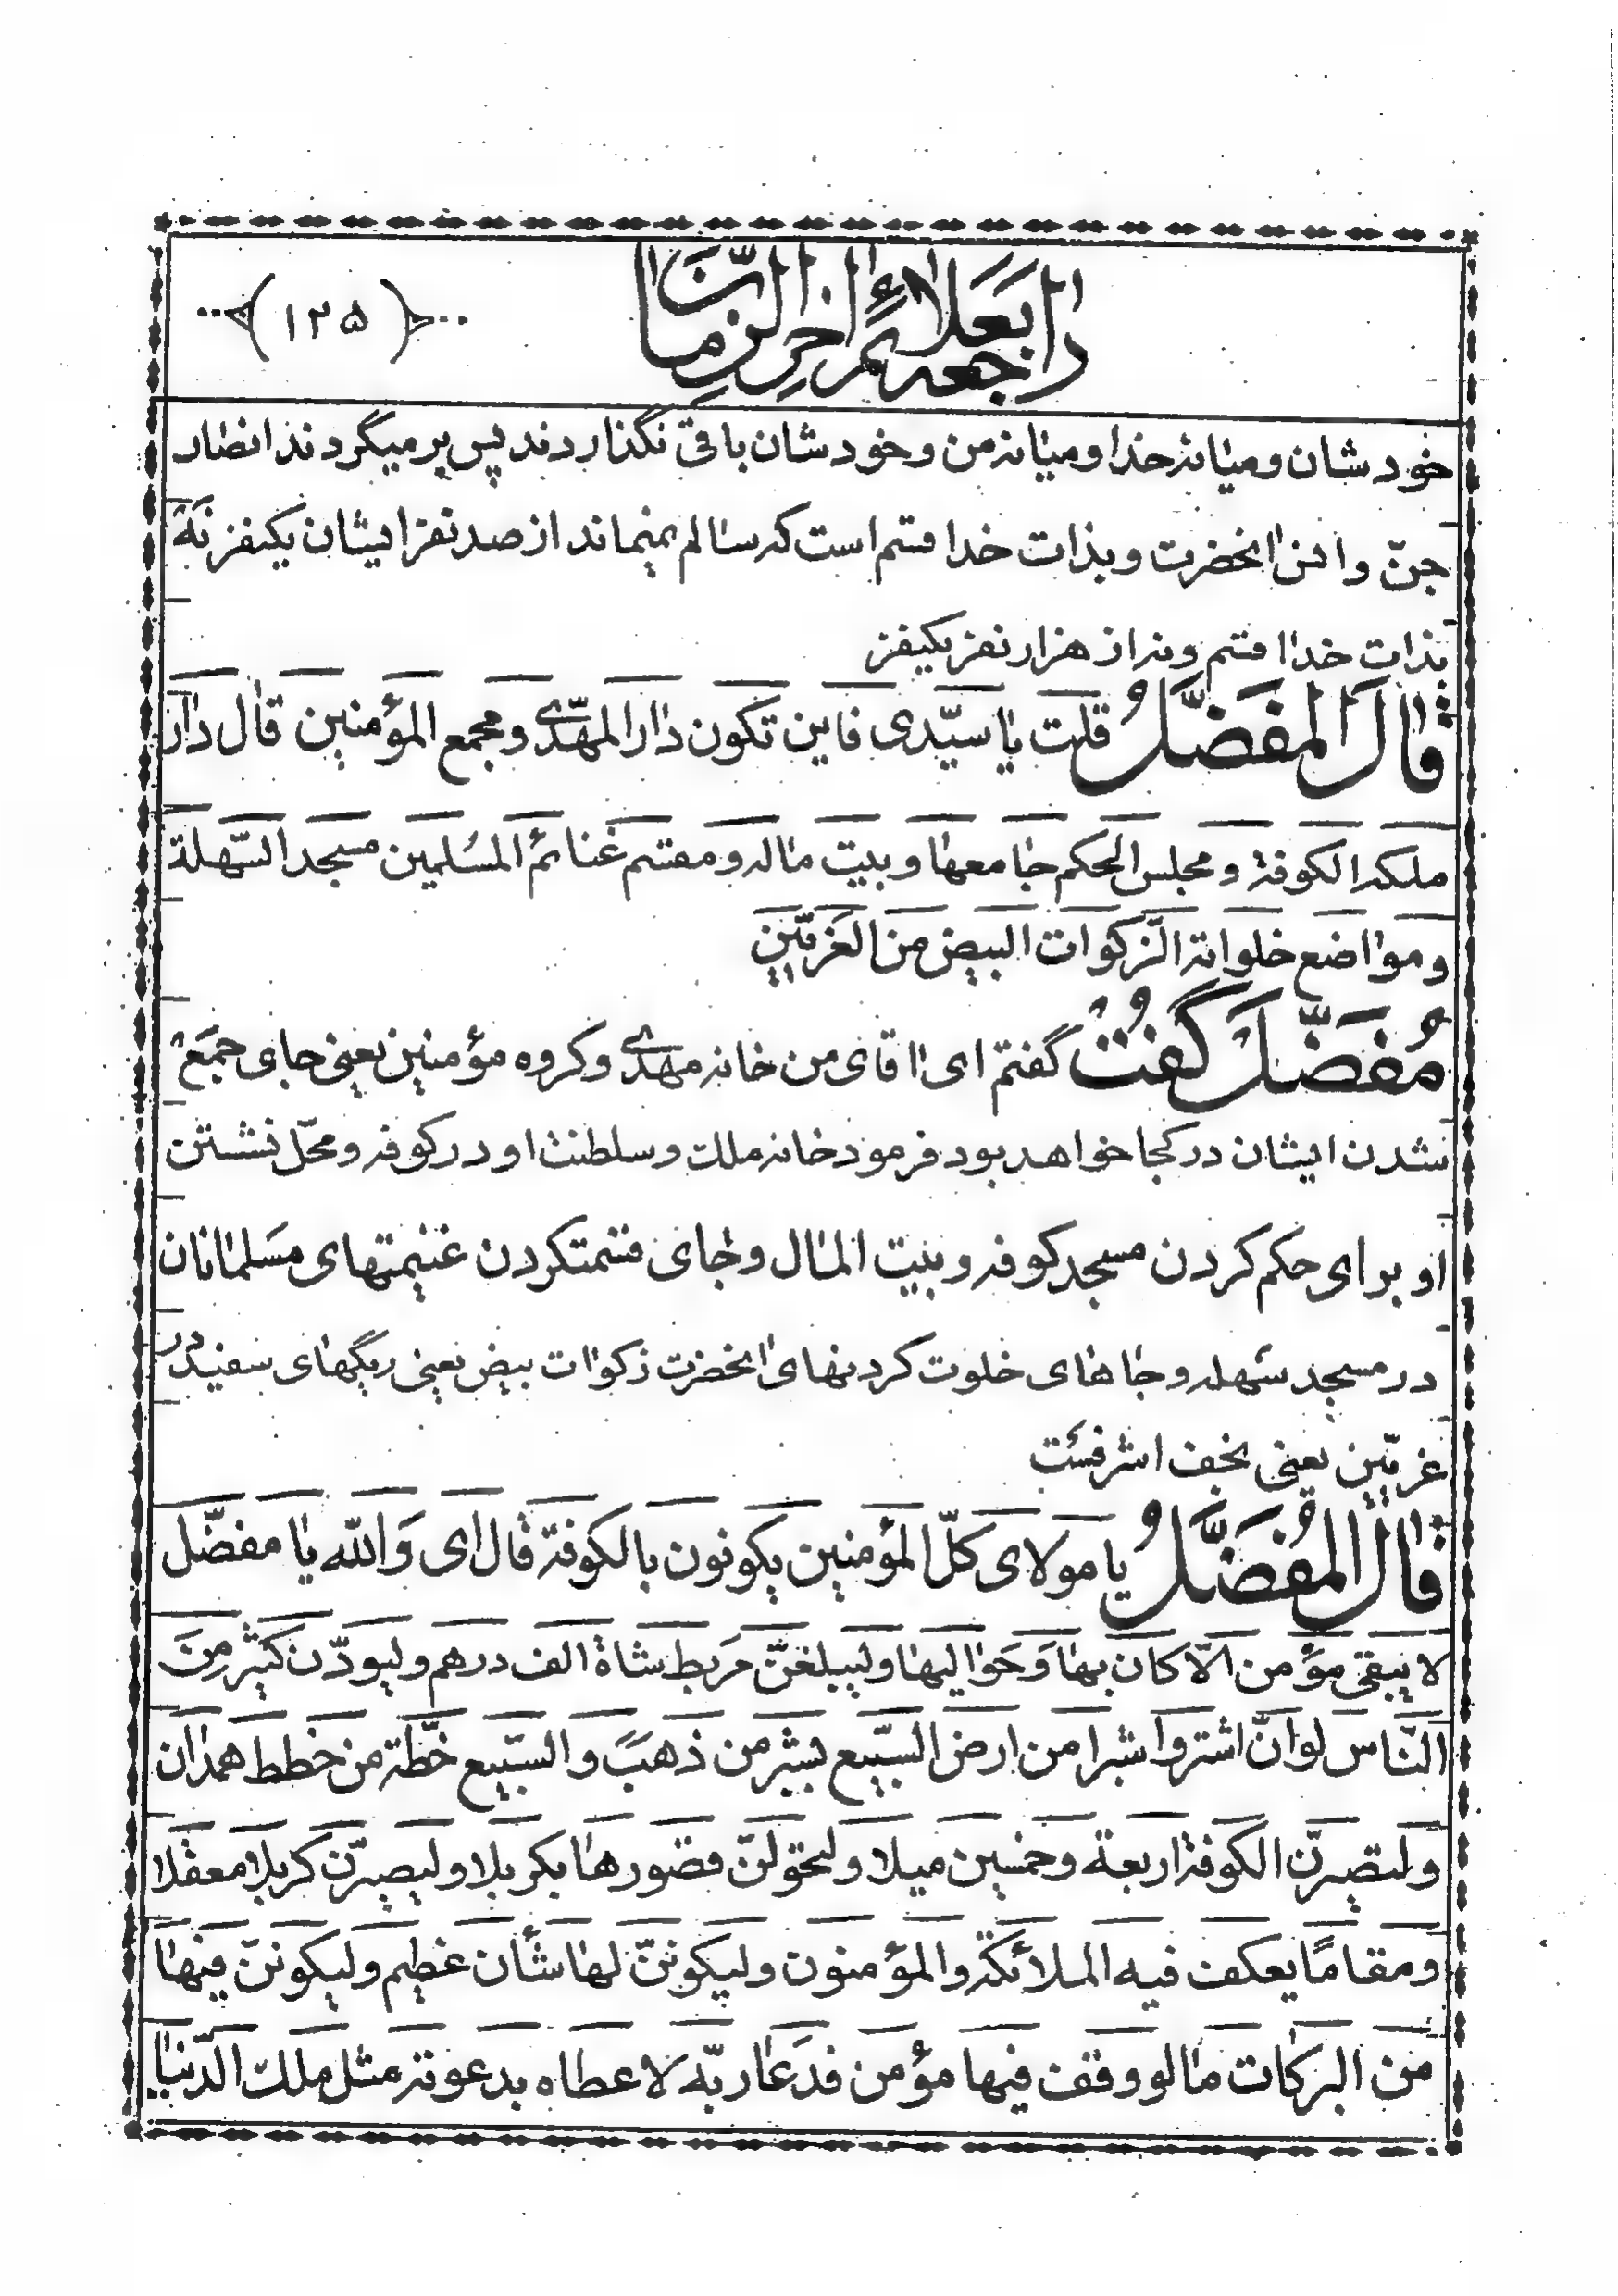 راجعه بعلائم اخر الزمان
﴿۱۲۵﴾
خودشان و میانهٔ خدا و میانه من و خودشان باقی نگذاردند پس بر میگردند انصار
جنّ و انس انحضرت و بذات خدا قسم است که سالم نمیماند از صد نفر ایشان یکنفر نه
بذات خدا قسم و نه از هزار نفر یکنفر
قال المفضّلُ قلت یا سیّدی فاین تکون دار المهدی و مجمع المؤمنین قال دار
ملکه الکوفة و مجلس الحکم جامعها و بیت ماله و مقسم غنائم المسلمین مسجد السّهلة
و مواضع خلواته الزکوات البیض من الغریّین
مُفضّل گفت گفتم ای اقای من خانه مهدی و کروه مؤمنین یعنی جای جمع
شدن ایشان در کجا خواهد بود فرمود خانه ملک و سلطنت او در کوفه و محلّ نشستن
او برای حکم کردن مسجد کوفه و بیت المال و جای قسمت کردن غنیمتهای مسلمانان
در مسجد سهله و جاهای خلوت کردنهای انحضرت زکوات بیض یعنی ریگهای سفید در
غریّین یعنی نجف اشرفست
قال المُفضّلُ یا مولای کلّ المؤمنین یکونون بالکوفة قال ای وَالله یا مفضّل
لا یبقی مؤمن الّا کان بها وَ حَوالیها و لیبلغنّ مربط شاة الف درهم و لیودّن کثیر مِنَ
النّاس لو انّ اشتروا شبرا من ارض السّبیع بشبر من ذهبَ و السّبیع خطّة من خطط همدان
و لتصیرنّ الکوفة اربعة و خمسین میلا و لیحولنّ قصورها بکربلا و لیصیرّن کربلا معقلا
و مقامًا یعکف فیه الملائکة و المؤمنون و لیکوننّ لها شأن عظیم و لیکوننّ فیها
من البرکات ما لو وقف فیها مؤمن فدعا ربّه لاعطاه بدعوته مثل ملک الدّنیا